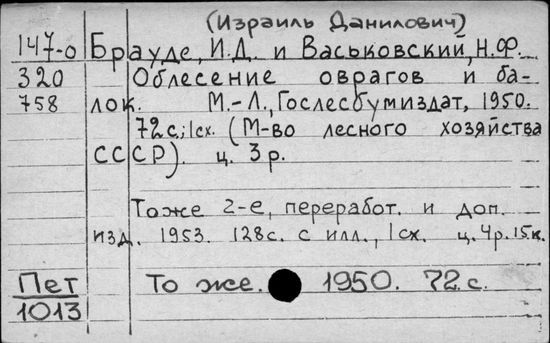 (Израиль Данилович)
147-0 Брауде, И.Д. и Васьковский, Н.Ф.
320 Облесение оврагов и ба-
758 лок. М.-Л., Гослесбумиздат, 1950.
72 с.; 1 сх. (М-во лесного хозяйства
СССР). ц. 3 р.
Тоже 2-е, переработ. и доп.
изд. 1953. 128 с. с илл., 1 сх. ц. 4 р. 15 к.
Пет То же. 1950. 72 с.
1013